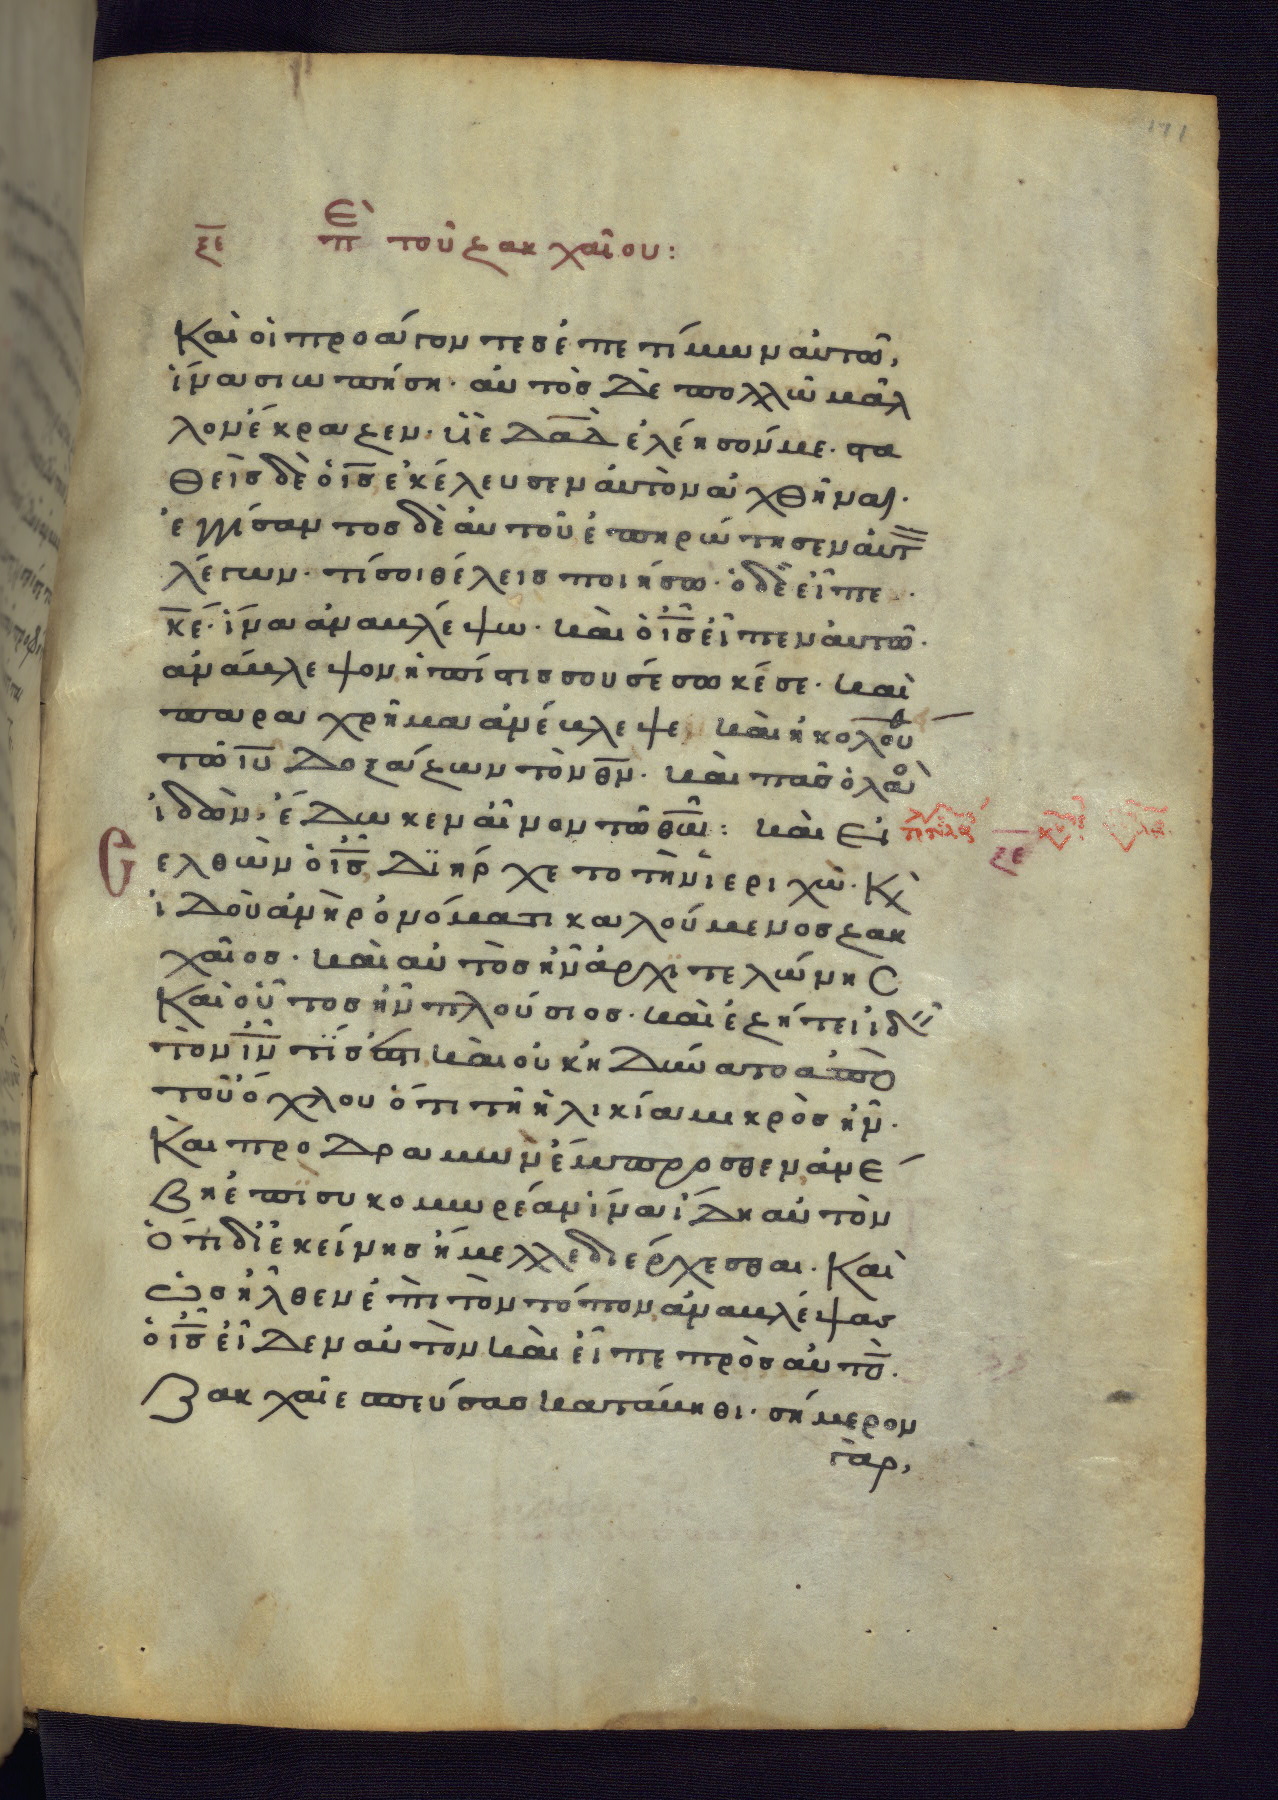 171
ξε πε τοῦ ζακχαῖου:
Καὶ οἱ προάγοντες ἐπετίμων αὐτῶ,
ἵνα σιωπήση. αὐτὸς δὲ πολλῶ μᾶλ
λον ἔκραζεν. υἱὲ δα̅δ̅ ἐλέησόν με. στα
θεὶς δὲ ὁ ι̅ς̅ ἐκέλευσεν αὐτὸν ἀχθῆναι.
ἐγγίσαντος δὲ αὐτοῦ ἐπηρώτησεν αὐτ
λέγων. τί σοι θέλεις ποιήσω. ὁ δὲ εἶπε.
κ̅ε̅. ἵνα ἀναβλέψω. καὶ ὁ ι̅ς̅ εἶπεν αὐτῶ.
ἀνάβλεψον ἡ πίστις σου σέσωκέ σε. καὶ
παραχρῆμα ἀνέβλεψε καὶ ἠκολού
τῶ ι̅υ̅ δοξάζων τὸν θ̅ν̅. καὶ πᾶς ὁ λαὸ
ἰδὼν, ἔδωκεν αἶνον τῶ θ̅ω̅: καὶ εἰ
ξε
σελθὼν ὁ ι̅ς̅ διήρχετο τὴν ἱεριχὼ. Κ
ἰδοὺ ἀνὴρ ὀνόματι καλούμενος ζακ
χαῖος. καὶ αὐτὸς ἦν ἀρχιτελώνης
Καὶ οὗτος ἦν πλούσιος. καὶ ἐζήτει ἰδεῖ
τὸν ι̅ν̅ τίς ἐστι καὶ οὐκ ἠδύνατο ἀπὸ
τοῦ ὄχλου ὅτι τῆ ἡλικία μικρὸς ἦν.
Καὶ προδραμὼν ἔμπροσθεν ἀνέ
βη ἐπὶ συκομωρέαν ἵνα ἴδη αὐτὸν
ὅτι δι ἐκείνης ἤμελλε διέρχεσθαι. Καὶ
ὡς ἦλθεν ἐπὶ τὸν τόπον, ἀναβλέψας
ὁ ι̅ς̅ εἶδεν αὐτὸν καὶ εἶπε πρὸς αὐτὸ.
Ζακχαῖε σπεύσας κατάβηθι. σήμερον
γὰρ,